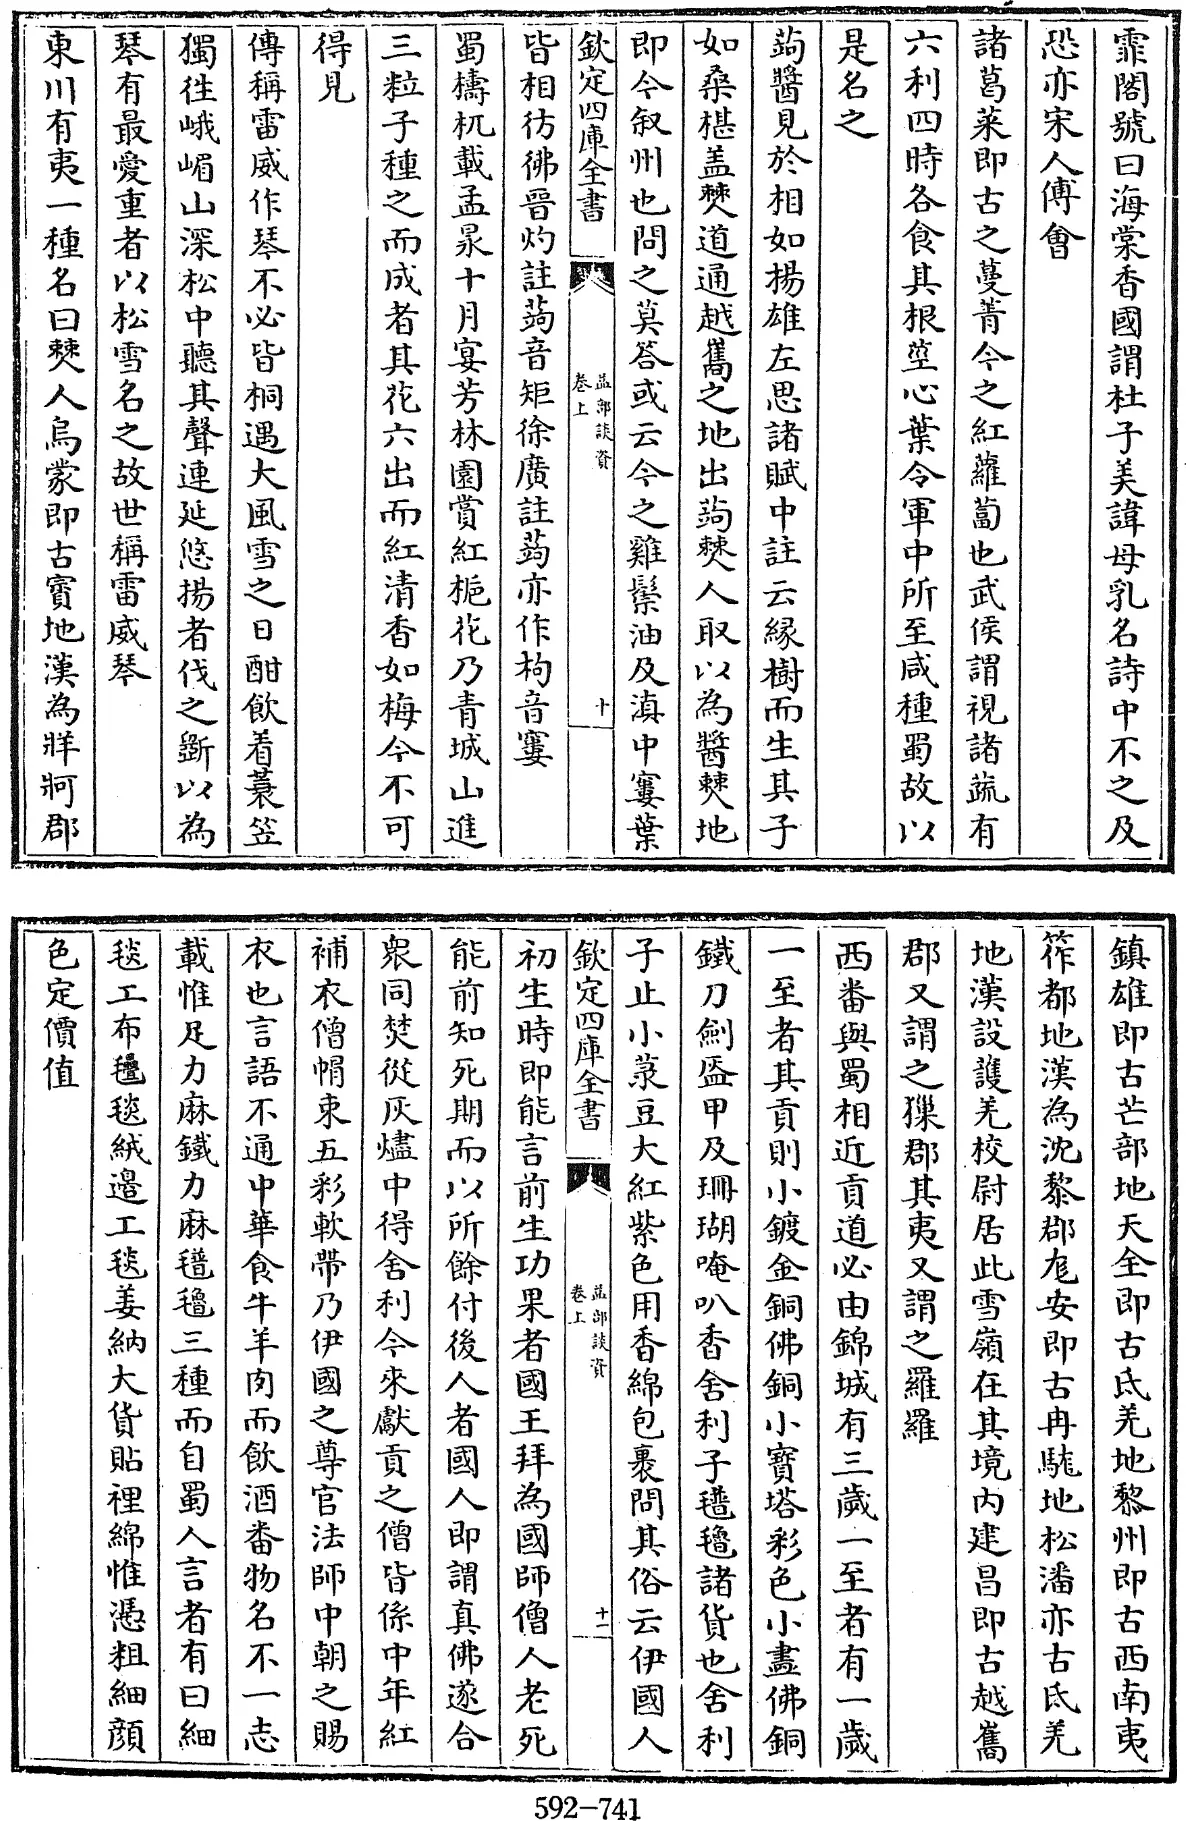 霏閣號曰海棠香國謂杜子美諱母乳名詩中不之及
恐亦宋人傅會
諸葛菜即古之蔓菁今之紅蘿蔔也武侯謂視諸蔬有
六利四時各食其根莖心葉令軍中所至咸種蜀故以
是名之
蒟醬見於相如揚雄左思諸賦中註云緣樹而生其子
如桑椹盖僰道通越嶲之地出蒟僰人取以為醬僰地
即今叙州也問之莫答或云今之雞鬃油及滇中蔞葉
欽定四庫全書
益部談資
卷上
十
皆相彷彿晉灼註蒟音矩徐廣註蒟亦作枸音寠
蜀檮杌載孟昶十月宴芳林園賞紅梔花乃青城山進
三粒子種之而成者其花六出而紅清香如梅今不可
得見
傳稱雷威作琴不必皆桐遇大風雪之日酣飲着蓑笠
獨往峨嵋山深松中聽其聲連延悠揚者伐之斵以為
琴有最愛重者以松雪名之故世稱雷威琴
東川有夷一種名曰僰人烏蒙即古竇地漢為牂牁郡
鎮雄即古芒部地天全即古氐羌地黎州即古西南夷
筰都地漢為沈黎郡尨安即古冉駹地松潘亦古氐羌
地漢設護羌校尉居此雪嶺在其境內建昌即古越嶲
郡又謂之獠郡其夷又謂之羅羅
西番與蜀相近貢道必由錦城有三歲一至者有一歲
一至者其貢則小鍍金銅佛銅小寶塔彩色小畫佛銅
鐵刀劍盔甲及珊瑚唵叭香舍利子氆氌諸貨也舍利
子止小菉豆大紅紫色用香綿包裹問其俗云伊國人
欽定四庫全書
益部談資
卷上
十一
初生時即能言前生功果者國王拜為國師僧人老死
能前知死期而以所餘付後人者國人即謂真佛遂合
衆同焚從灰燼中得舍利今來獻貢之僧皆係中年紅
補衣僧帽束五彩軟帶乃伊國之尊官法師中朝之賜
衣也言語不通中華食牛羊肉而飲酒番物名不一志
載惟足力麻鐵力麻氆氌三種而自蜀人言者有曰細
毯工布氆毯絨邊工毯姜納大貨貼裡綿惟憑粗細顔
色定價值
592-741